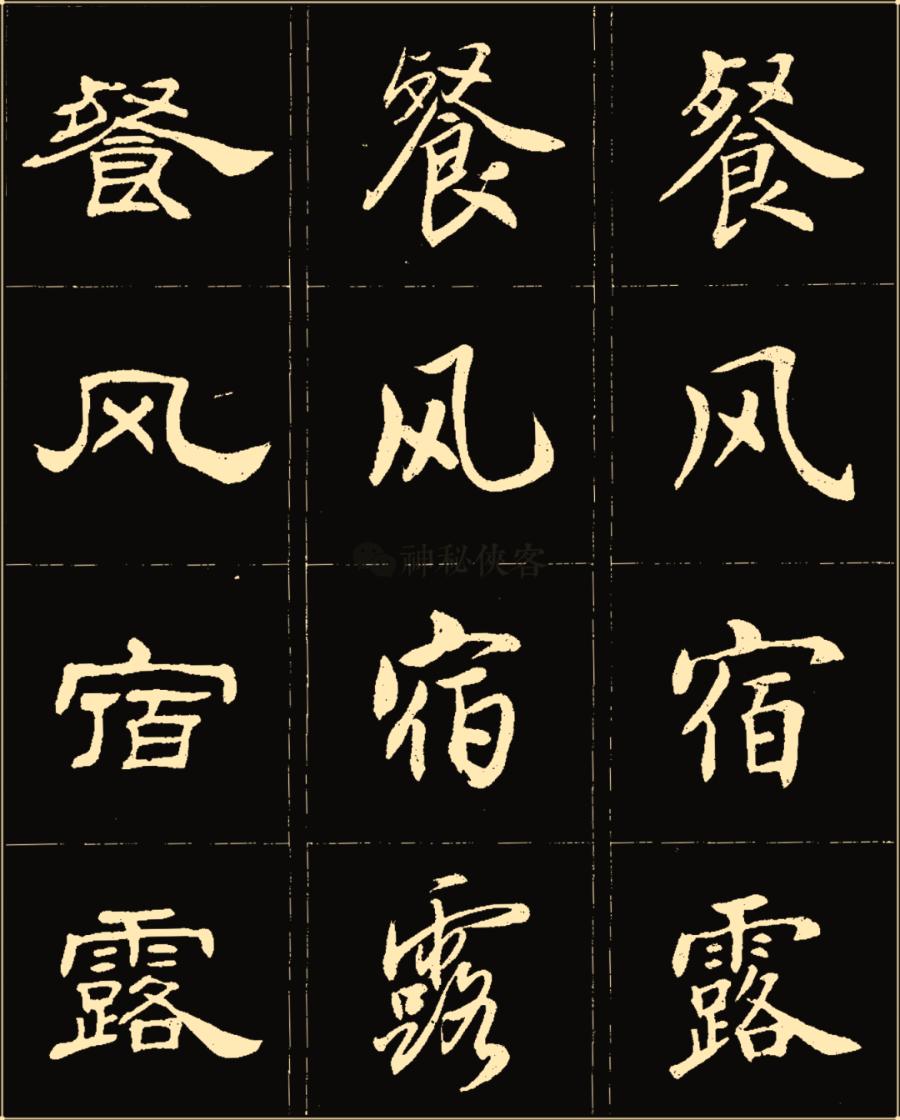 餐 餐 餐
风 风 风
宿 宿 宿
露 露 露
神秘侠客